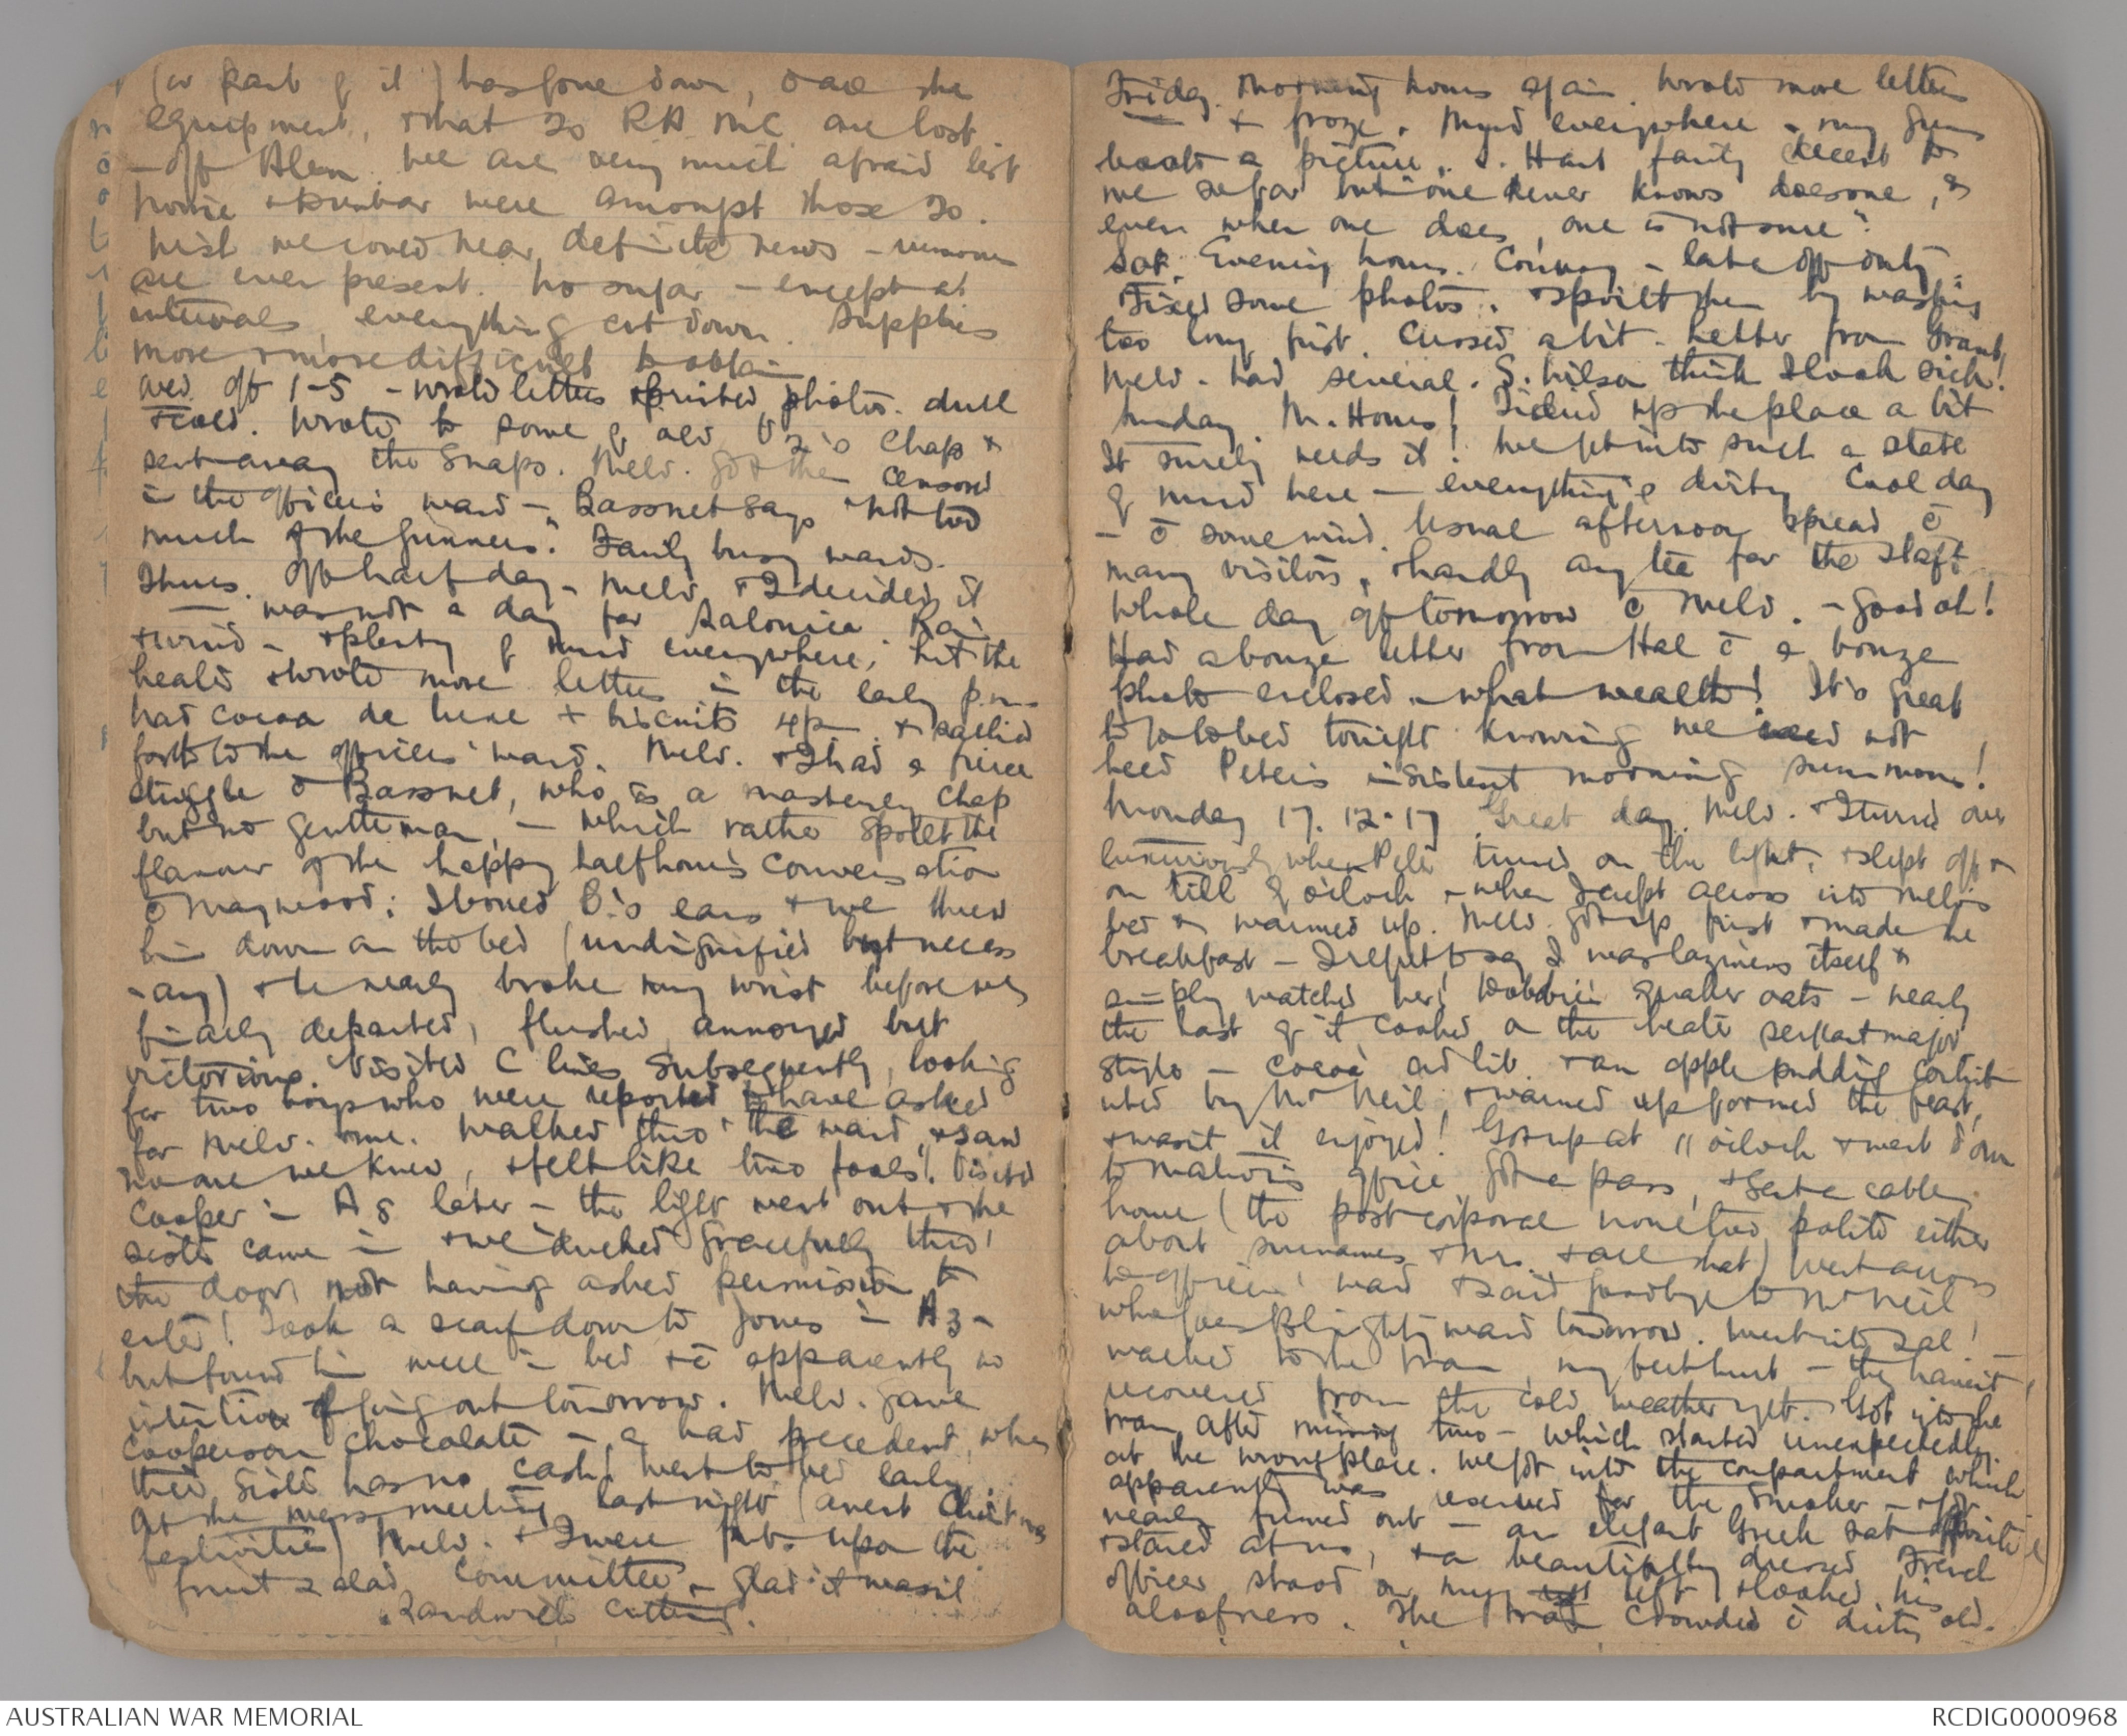 (or part of it) has gone down, c̄ all the
equipment, & that 20 RAMC are lost
- off Alex. We are very much afraid lest
Howie & Dunbar were amongst those 20.
Wish we could hear definite news - rumours
are ever present. No sugar - except at
intervals, everything cut down. Supplies
more & more difficult to obtain
Wed. off 1-5 - wrote letters & printed photos. dull
& cold. Wrote to some of old U2's Chaps &
sent away the snaps. Melv. got them censored
in the officers ward - Bassnet says "not too
much of the finners". Fairly busy wards.
Thurs. Off half day - Melv & I decided it
was not a day for Salonica. Rain
& wind - & plenty of mud everywhere, lit the
heater & wrote more letters in the early p.m.
had cocoa de luxe & biscuits 4p.m. & sallied
forth to the officers' ward. Melv. & I had a fierce
struggle c̄ Bassnet, who is a masterly chap
but no gentleman, - which rather spoilt the
flavour of the happy half hour's conversation
c̄ Maywood: I boxed B.'s ears & we threw
him down on the bed (undignified but necess
-ary) & he nearly broke my wrist before we
finally departed, flushed, annoyed but
victorious. Visited C lines subsequently, looking
for two boys who were reported to have asked
for Melv. & me. Walked thro' the ward, & saw
no one we knew, & felt like two fools! Visited
Cooper in A8 later - the light went out & the
sister came in & we ducked gracefully thro'
the door not having asked permission to
enter! Took a scarf down to Jones in A3 -
but found him well in bed & c̄ apparently no
intention of going out tomorrow. Melv. gave
Cooper some chocolate - a bad precedent, when
their sister has no cash! Went to bed early
At the mess meeting last night (anent Christmas
festivities) Melv. & I were put upon the
fruit salad Committee - glad it wasn't
Sandwich cutting.
Friday. Morning hours again. Wrote more letters
& froze. Mud everywhere - my gum
boots a picture. S. Hart fairly decent to
me so far but "one never knows does one, &
even when one does, one is not sure".
Sat. Evening hours. Conway - late off duty.
Fixed some photos. & spoilt them by washing
too long first. Cursed a bit. Letter from Grant,
Melv. had several. S. Wilson thinks I look sick!
Sunday. M. Hours! Tidied up the place a bit
It surely needs it! We get into such a state
of mind here - everything's dirty. Cool day
- c̄ some wind. Usual afternoon spread c̄
many visitors, & hardly any tea for the staff.
Whole day off tomorrow c̄ Melv. - good oh!
Had a bonze letter from Hal c̄ a bonze
photo enclosed - what wealth! It's great
to go to bed tonight knowing we need not
heed Peter's insistent morning summons!
Monday 17.12.17 Great day. Melv. & I turned over
luxuriously when Peter turned on the light, & slept off &
on till 9 o'clock - when I crept across into Melv's
bed & warmed up. Melv. got up first & made the
breakfast - I regret to say I was laziness itself &
simply watched her! Quaker oats - nearly
the last of it cooked on the heater sergeant major
style - cocoa ad lib. & an apple pudding contrib
uted by McNeil, & warmed up formed the feast,
& wasn't it enjoyed! Got up at 11 o'clock & went down
to Matron's office got a pass, & sent a cable
home (the post corporal none too polite either
about surnames & Nrs. & all that) Went across
to officers' ward & said goodbye to McNeil
who goes Blightyward tomorrow. Went into Sal!
walked to the tram, my feet hurt - they haven't
recovered from the cold weather yet. Got into the
tram after missing two - which started unexpectedly
at the wrong place. We got into the compartment which
apparently was reserved for the smoker - & got
nearly fumed out - an elegant Greek sat opposite
& stared at us, & a beautifully dressed French
officer stood on my left & looked his
aloofness. The tram crowded c̄ dirty old.
AUSTRALIAN WAR MEMORIAL
RCDIG0000968